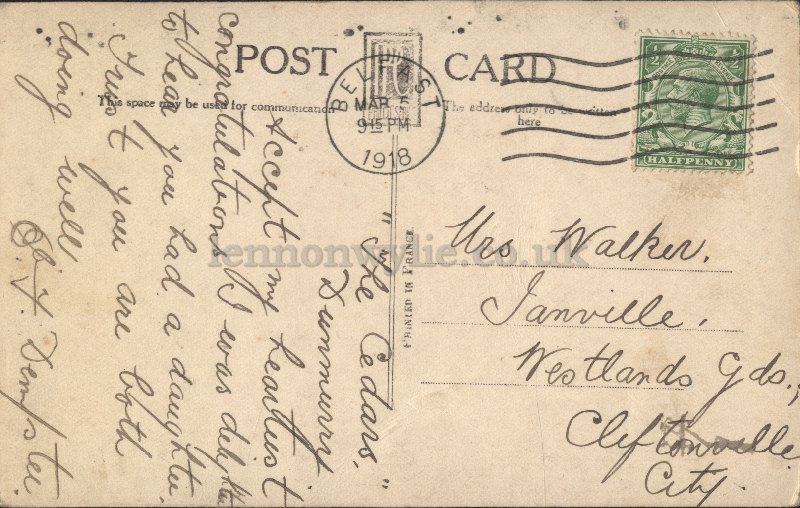 POST CARD
This space may be used for communication
The address only to be written
here
BELFAST
MAR 5
9 15 PM
1918
1/2 1/2
HALFPENNY
PRINTED IN FRANCE
lennonwylie.co.uk
"The Cedars,"
Dunmurry
Accept my heartiest
congratulations I was delighted
to hear you had a daughter.
Trust you are both
doing well
Dempster.
Mrs Walker,
Janville,
Westlands Gds.,
Cliftonville
City.